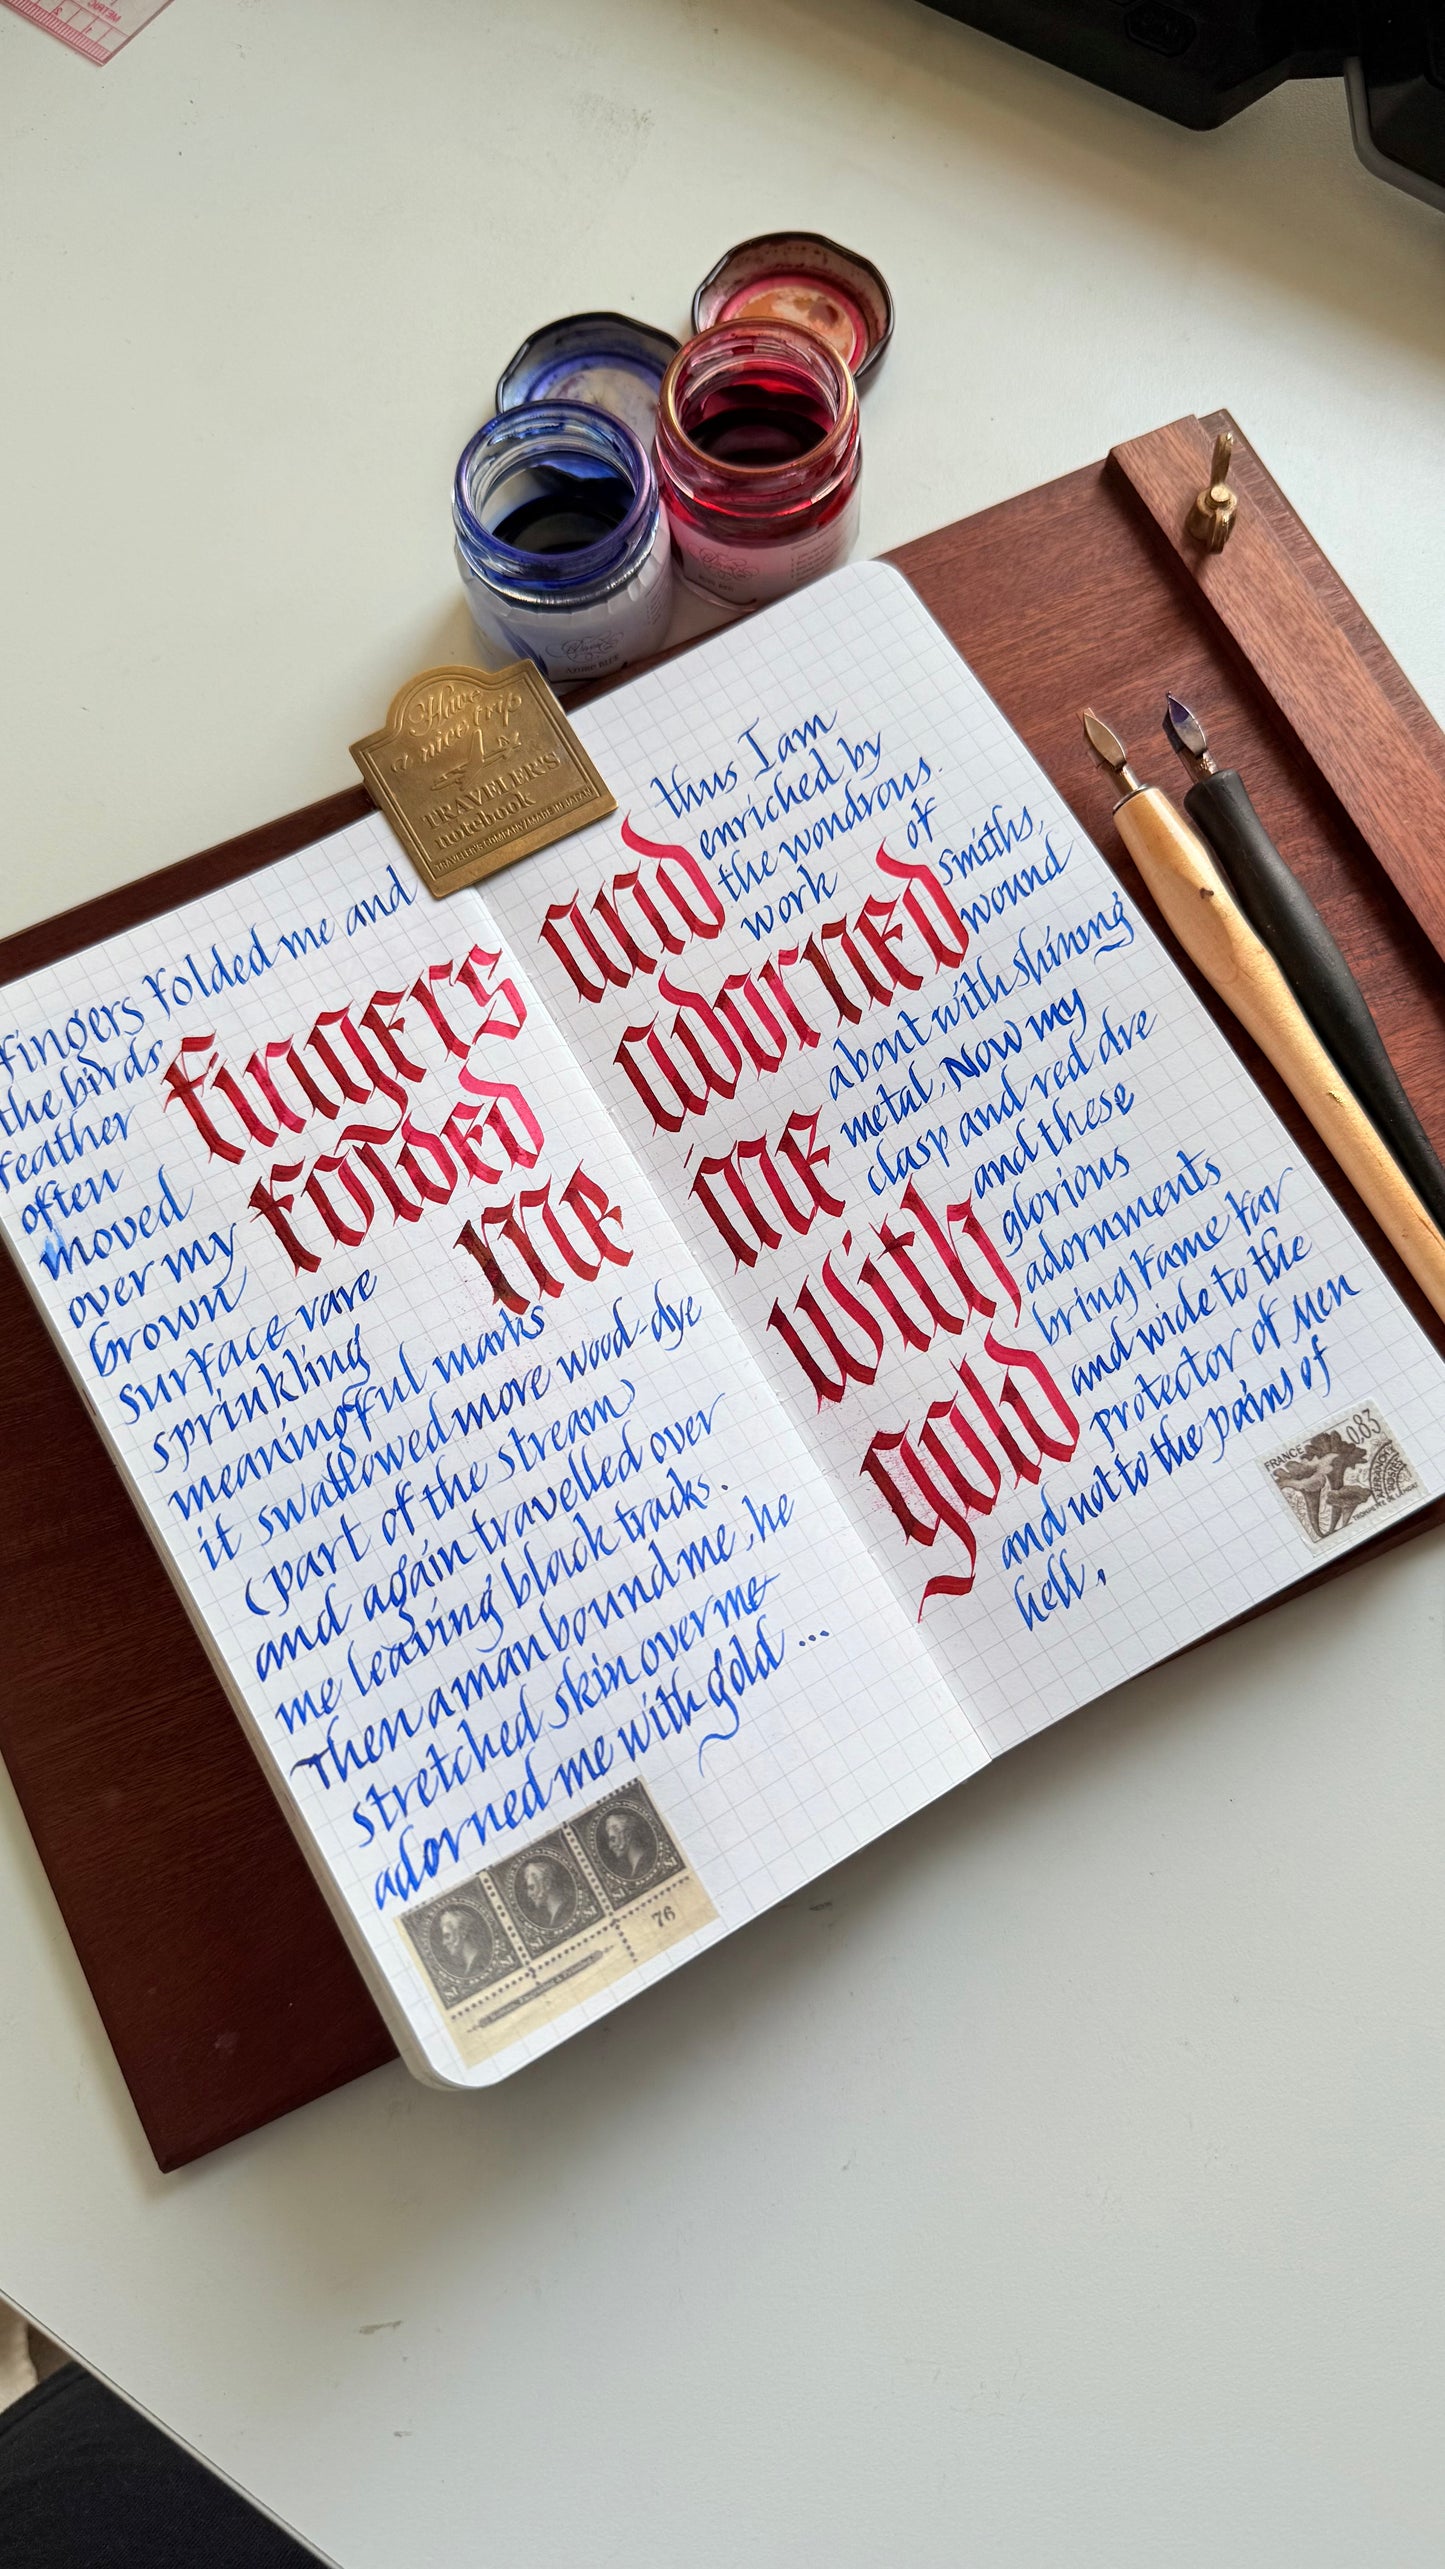 Have
a nice trip
TRAVELER'S
notebook
TRAVELER'S COMPANY MADE IN JAPAN
AZURE BLUE
fingers folded me and
the birds
feather
often
moved
over my
brown
surface rare
sprinkling
meaningful marks
it swallowed more wood-dye
(part of the stream)
and again travelled over
me leaving black tracks.
Then a man bound me, he
stretched skin over me
adorned me with gold ...
fingers
folded
me
76
thus I am
enriched by
the wondrous.
work of
smiths,
wound
about with shining
metal, Now my
clasp and red dye
and these
glorious
adornments
bring fame far
and wide to the
protector of Men
and not to the pains of
hell,
and
adorned
me
with
gold
FRANCE
0.83